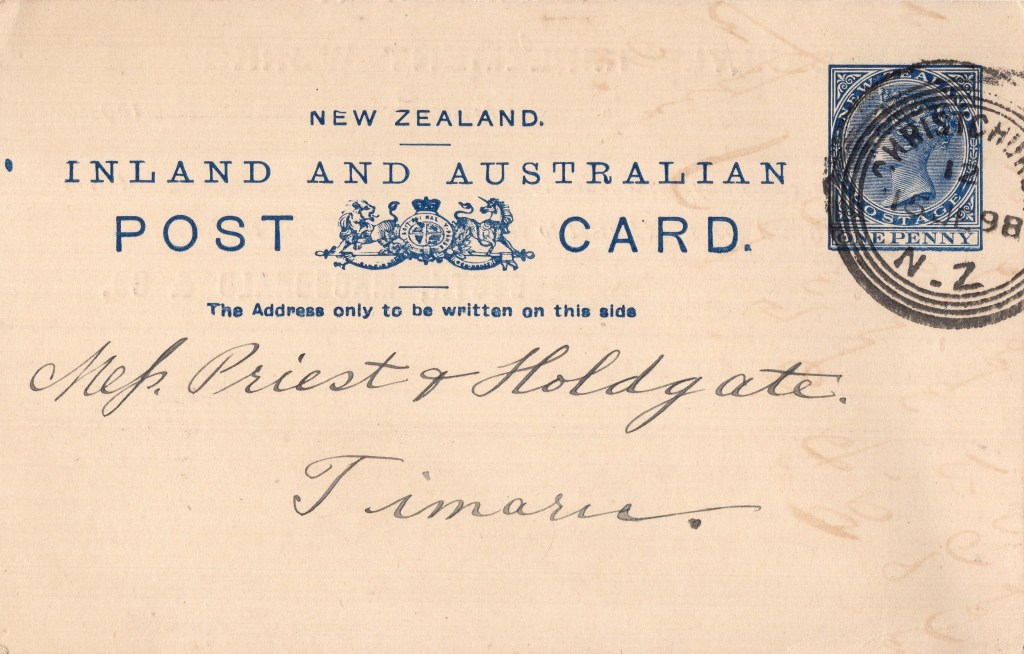 NEW ZEALAND.
INLAND AND AUSTRALIAN
POST CARD.
The Address only to be written on this side
NEW ZEALAND
POSTAGE
ONE PENNY
CHRISTCHURCH
98
N.Z
Mess. Priest & Holdgate.
Timaru.